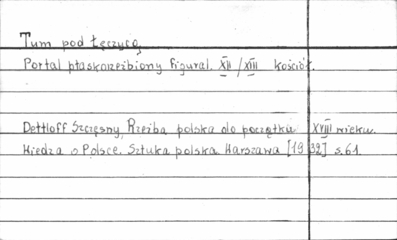 Tum pod Łęczycą,
Portal płaskorzeźbiony figural. XII/XIII kościół.
Dettloff Szczęsny, Rzeźba polska do początku XVIII wieku.
Wiedza o Polsce. Sztuka polska. Warszawa [1932] s. 61.